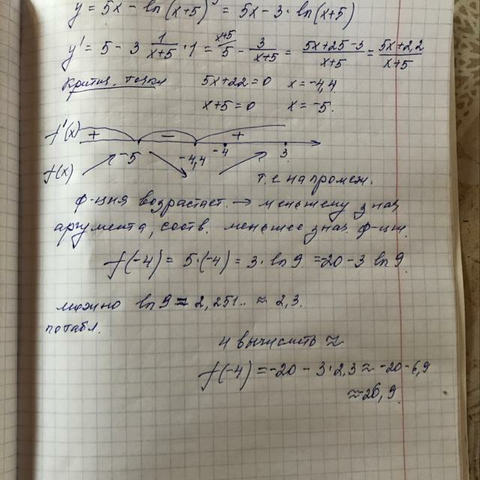 y = 5x - ln(x+5)³ = 5x - 3 · ln(x+5)
y' = 5 - 3 1/(x+5) · 1 = 5 - 3/(x+5) = (5x+25-3)/(x+5) = (5x+22)/(x+5)
Критич. точки 5x+22=0 x=-4,4
x+5=0 x=-5.
f'(x) + - +
-5 -4,4 -4 3
f(x) т.е на промеж.
ф-ция возрастает → меньшему знач
аргумента, соотв. меньшее знач ф-ции.
f(-4) = 5·(-4) = 3·ln 9 = -20 - 3 ln 9.
можно ln 9 ≈ 2,251.. ≈ 2,3.
по табл.
и вычислить ≈
f(-4) = -20 - 3·2,3 ≈ -20 - 6,9
≈ -26,9.